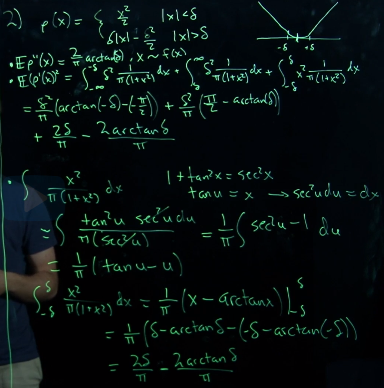 2) ρ(x) = { x²/2 |x|<δ
δ|x| - δ²/2 |x|>δ
-δ δ
• Eρ"(x) = 2/π arctan(δ), x ~ f(x)
• E(ρ'(x)² = ∫_{-∞}^{-δ} δ² 1/π(1+x²) dx + ∫_{δ}^{∞} δ² 1/π(1+x²) dx + ∫_{-δ}^{δ} x² 1/π(1+x²) dx
= δ²/π (arctan(-δ) - (-π/2)) + δ²/π (π/2 - arctan(δ))
+ 2δ/π - 2arctanδ/π
• ∫ x²/π(1+x²) dx 1+tan²x = sec²x
tan u = x → sec²u du = dx
= ∫ tan²u sec²u du/π(sec²u) = 1/π ∫ sec²u - 1 du
= 1/π (tan u - u)
∫_{-δ}^{δ} x²/π(1+x²) dx = 1/π (x - arctanx) |_{-δ}^{δ}
= 1/π (δ - arctanδ - (-δ - arctan(-δ))
= 2δ/π - 2arctanδ/π